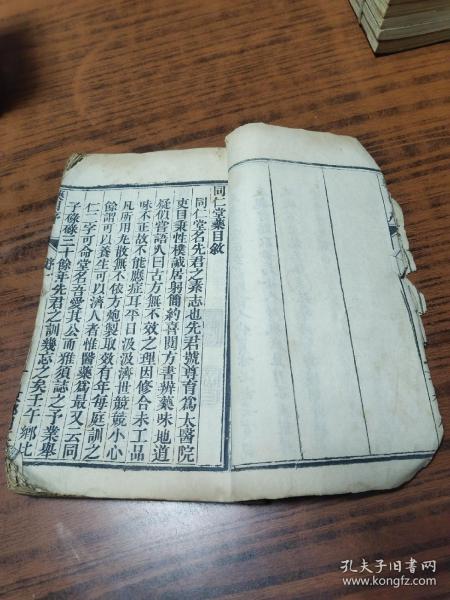 同仁堂藥目敘
同仁堂名先君之素志也先君號尊育爲太醫院
吏目秉性樸誠居躬簡約喜閱方書辨藥味地道
疑似嘗語人曰古方無不效之理因修合未工品
味不正故不能應症耳平日汲汲濟世兢兢小心
凡所用尤散無不依方炮製取效有年每庭訓之
餘謂可以養生可以濟人者惟醫藥爲最又云同
仁二字可命堂名吾愛其公而雅須誌之予業舉
子碌碌三十餘年先君之訓幾忘之矣壬午鄉比
序
孔夫子旧书网
www.kongfz.com